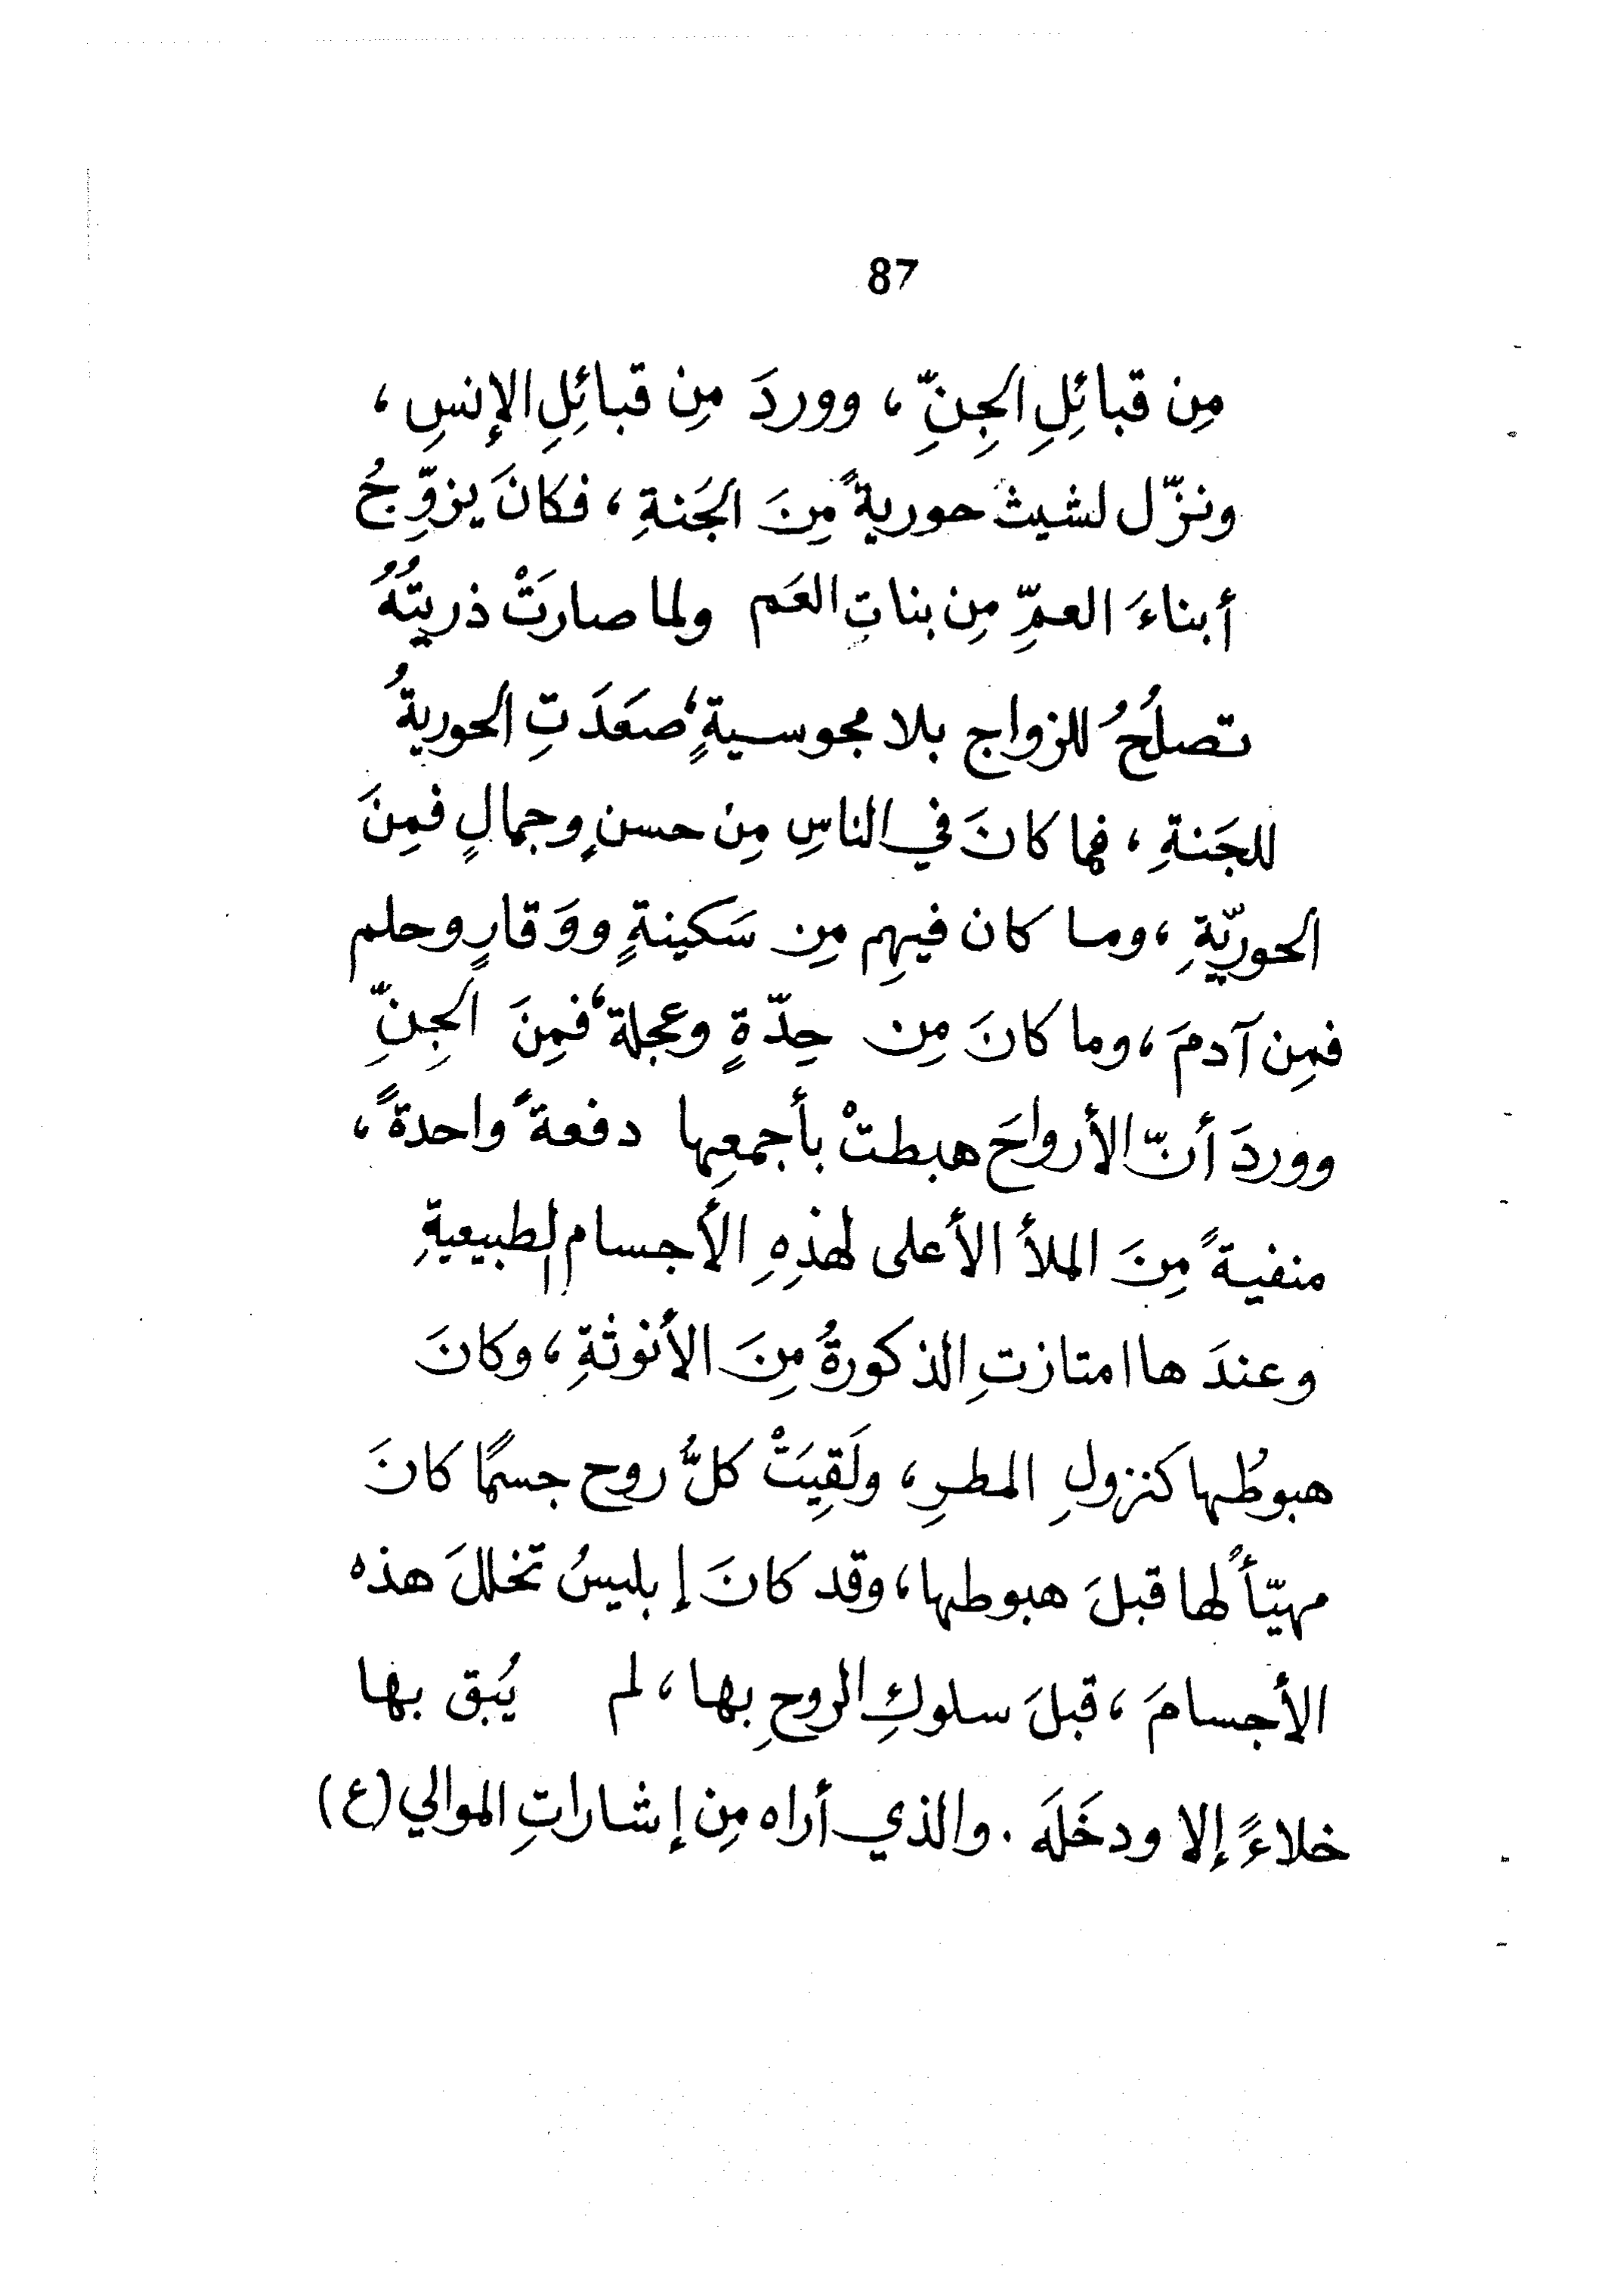 87
مِن قبائِلِ الجِنِّ ، ووردَ مِن قبائِلِ الإنسِ ،
ونزّل لشيثَ حوريةً مِنَ الجَنةِ ، فكانَ يزوِّجُ
أبناءَ العمِّ مِن بناتِ العَم ولما صارَتْ ذريتُهُ
تصلُحُ للزواج بلا مجوسيةٍ ، صعَدَتِ الحوريةُ
للجَنةِ ، فما كانَ في الناسِ مِن حسنٍ وجمالٍ فمِنَ
الحوريّةِ ، وما كان فيهِم مِن سَكينةٍ ووَقارٍ وحلم
فمِن آدمَ ، وما كانَ مِن حِدّةٍ وعجلة ، فمِنَ الجِنِّ
ووردَ أنّ الأرواحَ هبطتْ بأجمعِها دفعةً واحدةً ،
منفيةً مِنَ الملأ الأعلى لهذِهِ الأجسام الطبيعيةِ
وعندَ ها امتازتِ الذكورةُ مِنَ الأنوثةِ ، وكانَ
هبوطُها كنزولِ المطرِ ، ولَقِيَتْ كلُّ روح جسمًا كانَ
مهيّأً لها قبلَ هبوطها ، وقد كانَ إبليسُ تخللَ هذه
الأجسامَ ، قبلَ سلوكِ الروحِ بها ، لم يُبق بها
خلاءً إلا ودخَلَه . والذي أراه مِن إشاراتِ الموالي (ع)